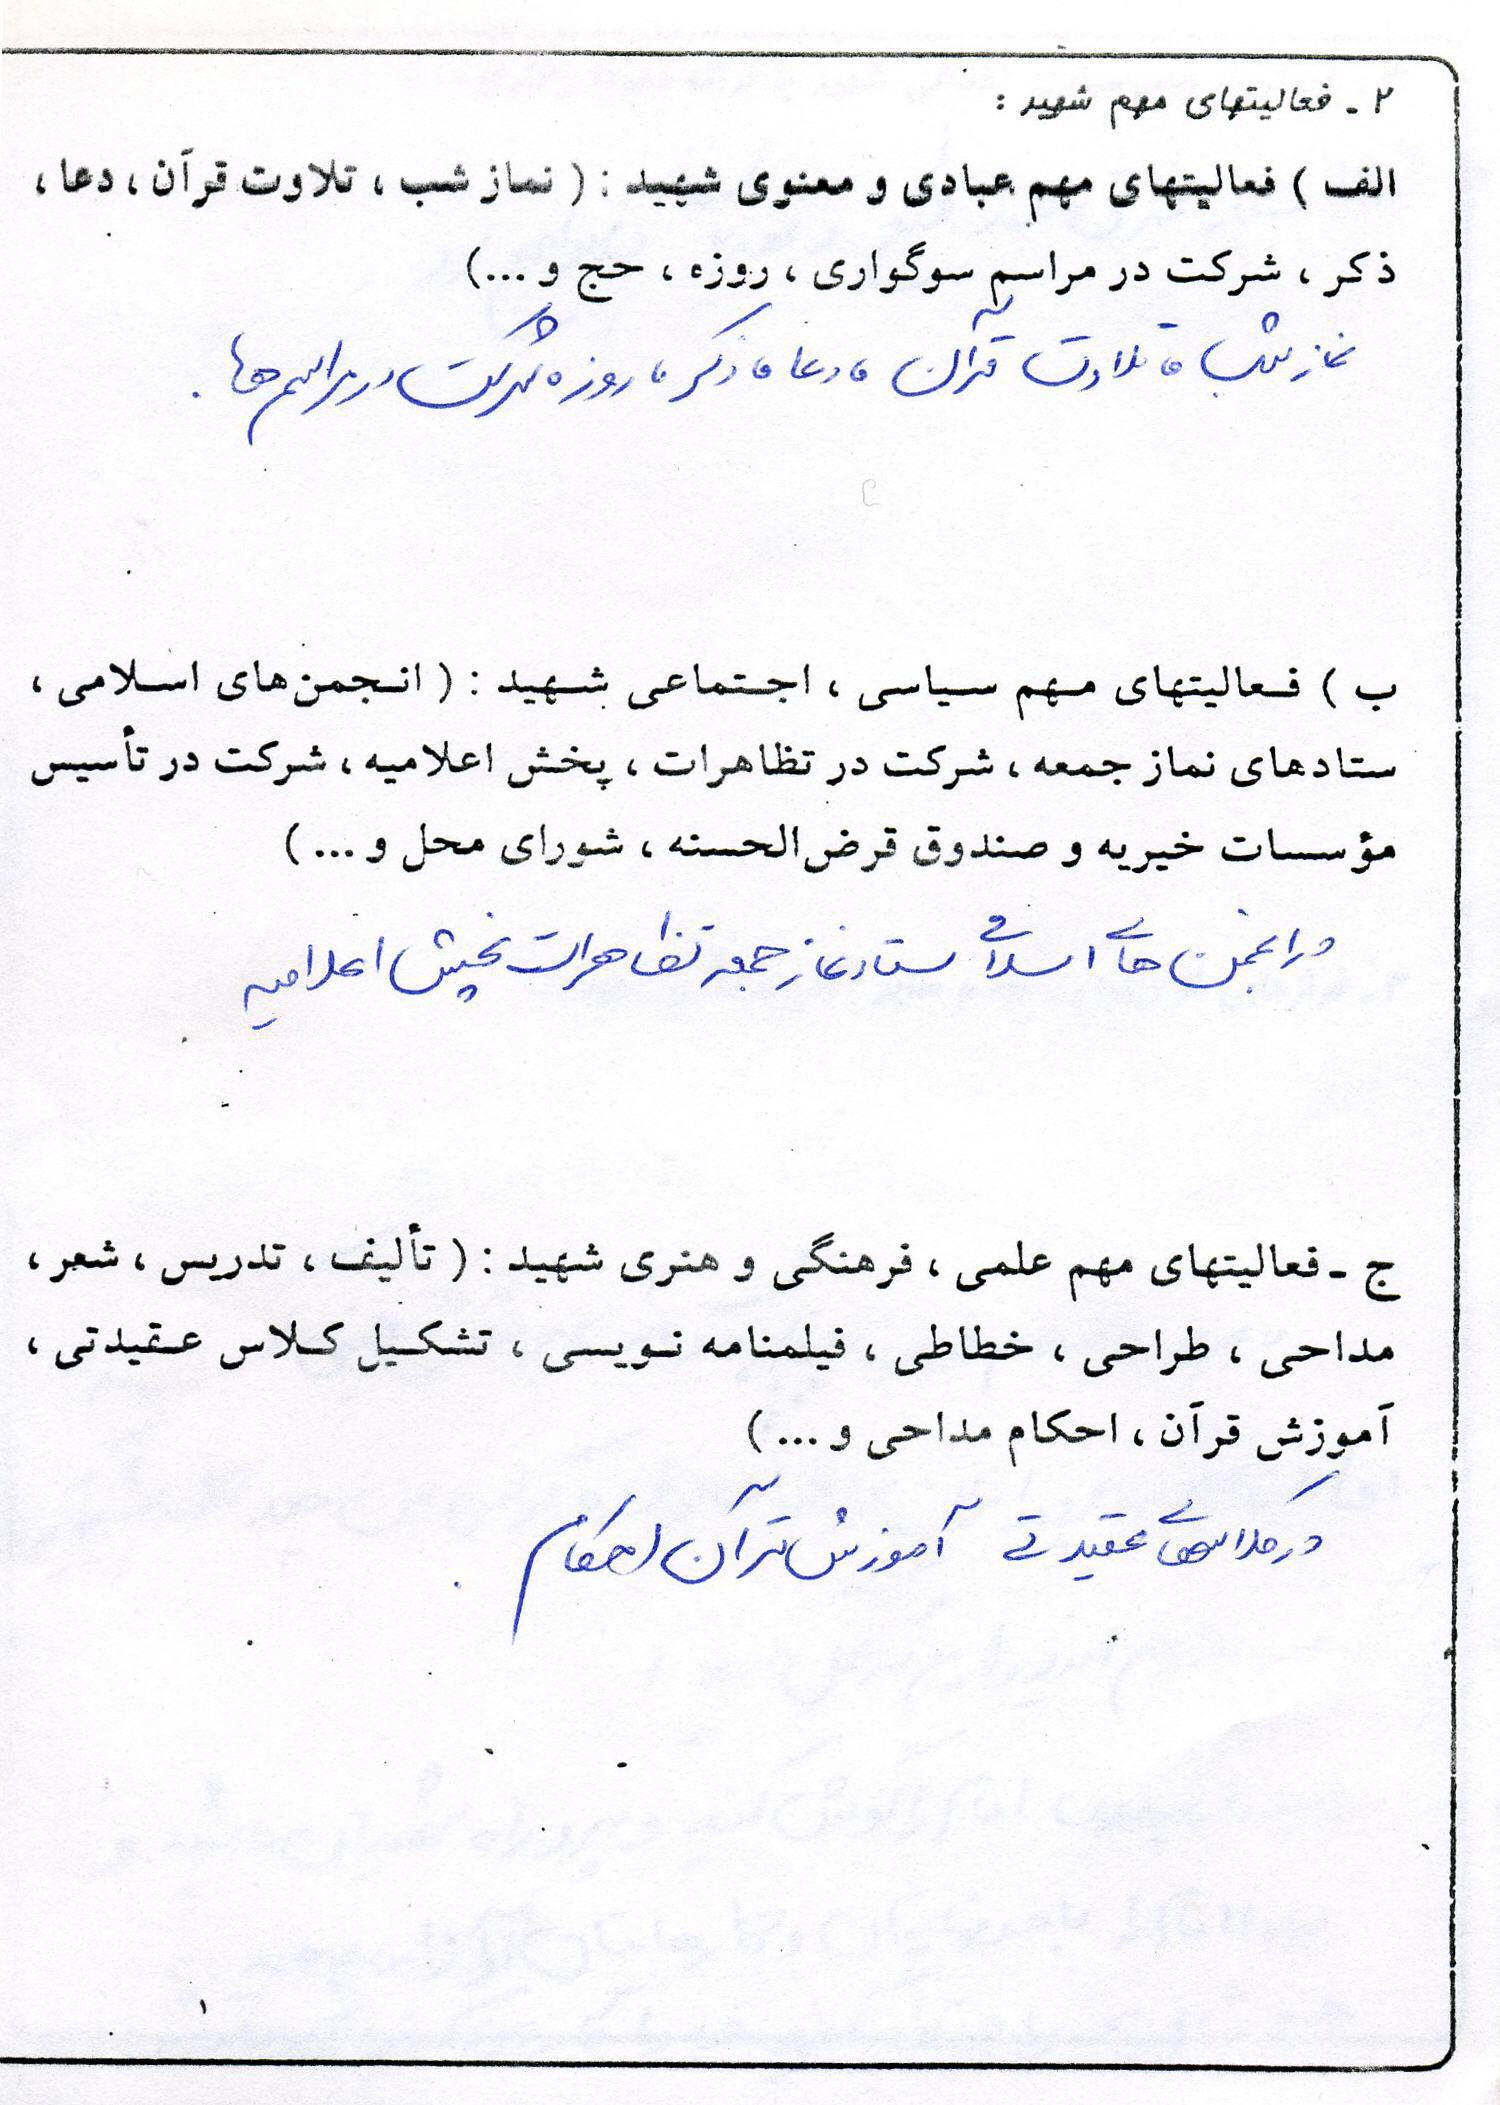 ۲ - فعالیتهای مهم شهید :
الف ) فعالیتهای مهم عبادی و معنوی شهید : ( نماز شب ، تلاوت قرآن ، دعا ،
ذکر ، شرکت در مراسم سوگواری ، روزه ، حج و ...)
نماز شب ، تلاوت قرآن ، دعا ، ذکر ، روزه شرکت در مراسم ها .
ب ) فعالیتهای مهم سیاسی ، اجتماعی شهید : ( انجمن‌های اسلامی ،
ستادهای نماز جمعه ، شرکت در تظاهرات ، پخش اعلامیه ، شرکت در تأسیس
مؤسسات خیریه و صندوق قرض‌الحسنه ، شورای محل و ... )
در انجمن های اسلامی ستاد نماز جمعه تظاهرات پخش اعلامیه
ج - فعالیتهای مهم علمی ، فرهنگی و هنری شهید : ( تألیف ، تدریس ، شعر ،
مداحی ، طراحی ، خطاطی ، فیلمنامه نویسی ، تشکیل کلاس عقیدتی ،
آموزش قرآن ، احکام مداحی و ... )
در کلاسهای عقیدتی آموزش قرآن احکام .
۱